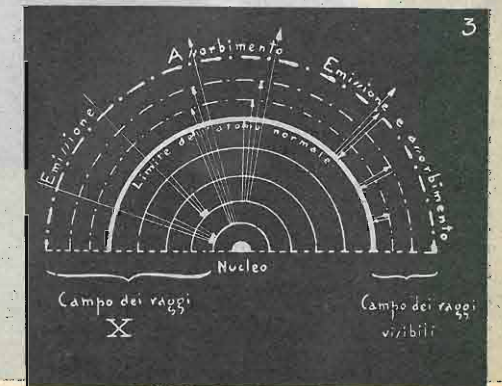 3
Assorbimento
Emissione
Emissione e assorbimento
Limite dell'atomo normale
Nucleo
Campo dei raggi
X
Campo dei raggi
visibili